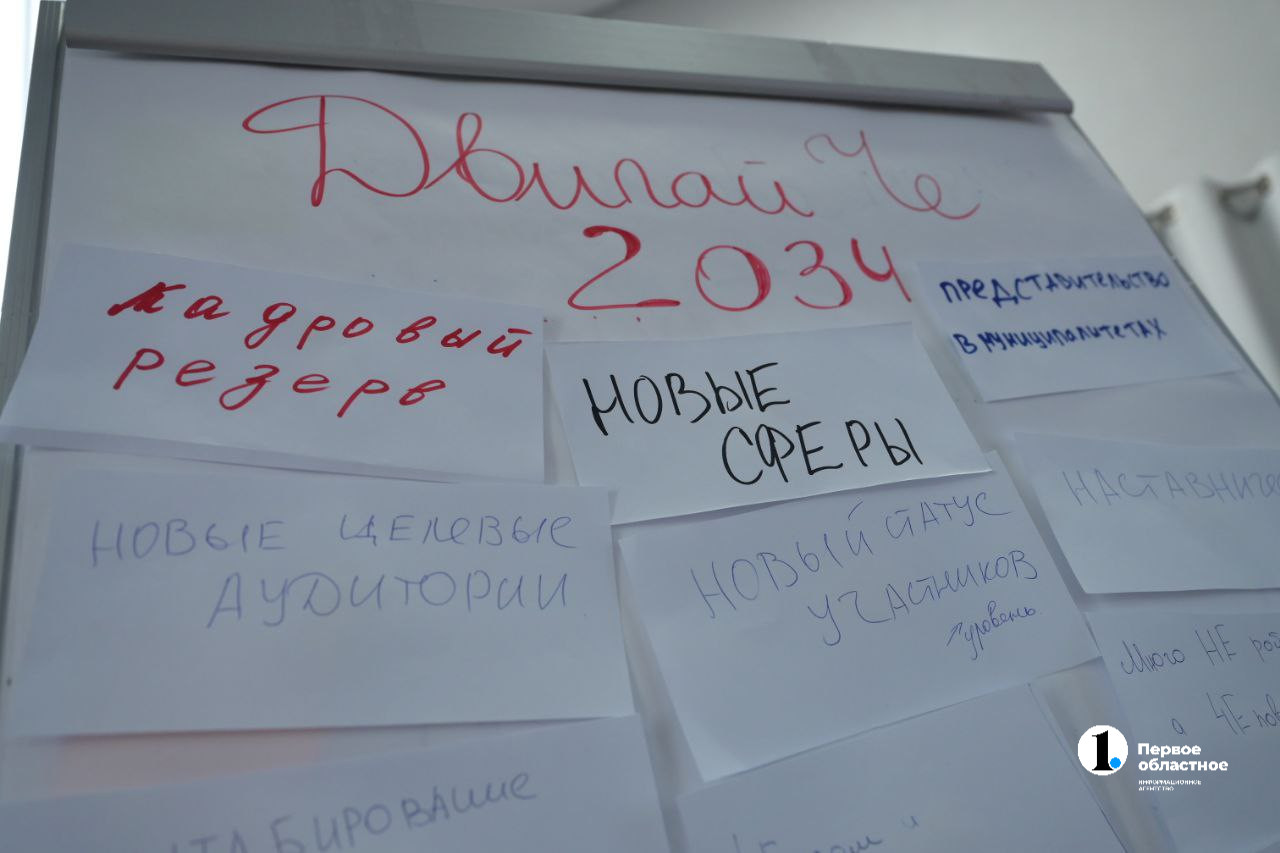 Двигай Че
2034
кадровый
резерв
НОВЫЕ
СФЕРЫ
ПРЕДСТАВИТЕЛЬСТВО
В МУНИЦИПАЛИТЕТАХ
НОВЫЕ ЦЕЛЕВЫЕ
АУДИТОРИИ
НОВЫЙ СТАТУС
УЧАСТНИКОВ
↗уровень
НАСТАВНИЧЕ
Много НЕ
а ЧЕ
1.
Первое
областное
ИНФОРМАЦИОННОЕ
АГЕНТСТВО
ТАБИРОВАние